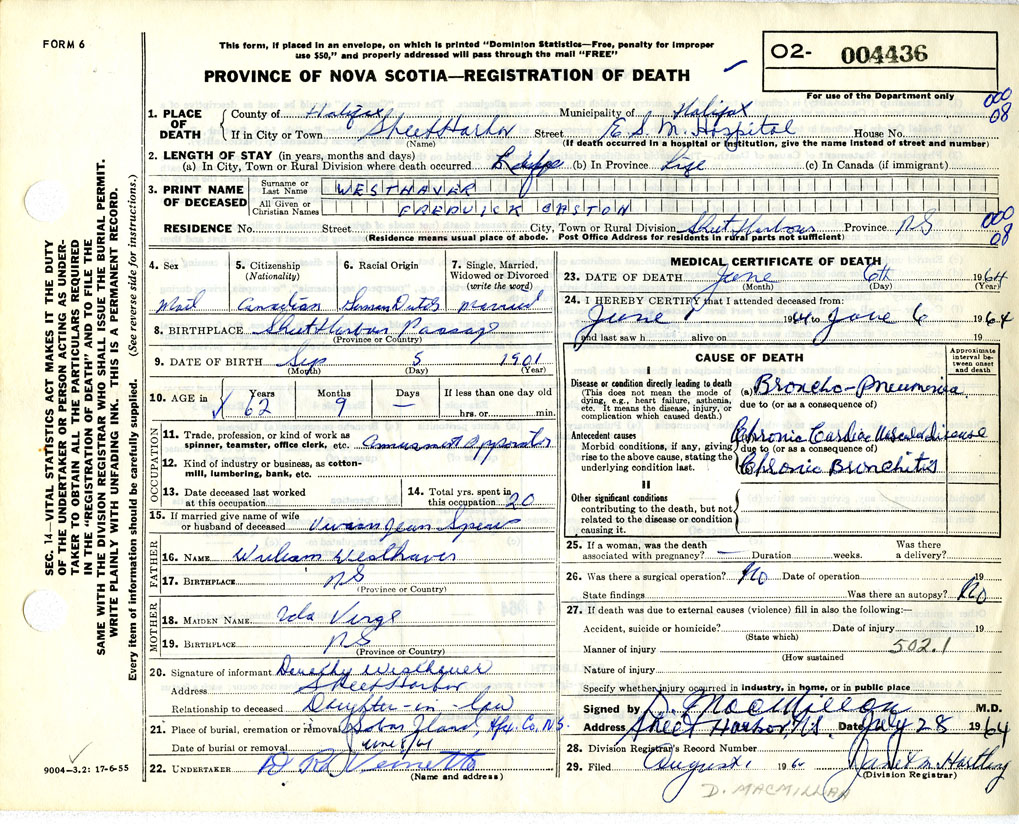 FORM 6
This form, if placed in an envelope, on which is printed "Dominion Statistics—Free, penalty for improper
use $50," and properly addressed will pass through the mail "FREE"
PROVINCE OF NOVA SCOTIA—REGISTRATION OF DEATH
O2- 004436
For use of the Department only
000
08
1. PLACE OF DEATH { County of Halifax Municipality of Halifax
If in City or Town Sheet Harbor Street E. S. M. Hospital House No.
(Name) (If death occurred in a hospital or institution, give the name instead of street and number)
2. LENGTH OF STAY (in years, months and days)
(a) In City, Town or Rural Division where death occurred (b) In Province Life (c) In Canada (if immigrant)
3. PRINT NAME OF DECEASED
Surname or Last Name WESTHAVER
All Given or Christian Names FREDVICK CASTON
000
08
RESIDENCE No. Street City, Town or Rural Division Sheet Harbour Province NS
(Residence means usual place of abode. Post Office Address for residents in rural parts not sufficient)
4. Sex 5. Citizenship (Nationality) 6. Racial Origin 7. Single, Married, Widowed or Divorced (write the word)
Mail Canadian German Dutch married
8. BIRTHPLACE Sheet Harbour Passage
(Province or Country)
9. DATE OF BIRTH Sep 5 1901
(Month) (Day) (Year)
10. AGE in Years 62 Months 9 Days — If less than one day old
hrs. or min.
OCCUPATION
11. Trade, profession, or kind of work as
spinner, teamster, office clerk, etc. Amusment Apporator
12. Kind of industry or business, as cotton-
mill, lumbering, bank, etc.
13. Date deceased last worked at this occupation
14. Total yrs. spent in this occupation 20
15. If married give name of wife
or husband of deceased Vivian Jean Spears
FATHER
16. NAME William Westhaver
17. BIRTHPLACE NS
(Province or Country)
MOTHER
18. MAIDEN NAME Ida Virge
19. BIRTHPLACE NS
(Province or Country)
20. Signature of informant Dorothy Westhaver
Address Sheet Harbor
Relationship to deceased Daughter-in-law
21. Place of burial, cremation or removal Sobers Island, Hfx. Co. N.S.
Date of burial or removal June 8/64
22. UNDERTAKER
(Name and address)
MEDICAL CERTIFICATE OF DEATH
23. DATE OF DEATH June 6th 1964
(Month) (Day) (Year)
24. I HEREBY CERTIFY that I attended deceased from:
June 1 1964 to June 6 1964
and last saw h alive on 19
CAUSE OF DEATH
Approximate interval between onset and death
I
Disease or condition directly leading to death
(This does not mean the mode of
dying, e.g., heart failure, asthenia,
etc. It means the disease, injury, or
complication which caused death.)
(a) Broncho-Pneumonia
due to (or as a consequence of)
Antecedent causes
Morbid conditions, if any, giving
rise to the above cause, stating the
underlying condition last.
(b) Chronic Cardio Vascular disease
due to (or as a consequence of)
(c) Chronic Bronchitis
II
Other significant conditions
contributing to the death, but not
related to the disease or condition
causing it.
25. If a woman, was the death
associated with pregnancy? — Duration weeks. Was there a delivery?
26. Was there a surgical operation? No Date of operation 19
State findings Was there an autopsy? No
27. If death was due to external causes (violence) fill in also the following:—
Accident, suicide or homicide? Date of injury 19
(State which)
Manner of injury 502.1
(How sustained
Nature of injury
Specify whether injury occurred in industry, in home, or in public place
Signed by D. MacMillan M.D.
Address Sheet Harbor, N.S. Date July 28 1964
28. Division Registrar's Record Number
29. Filed August 1 196 Janet M. Hartling
(Division Registrar)
D. MACMILLAN
SEC. 14—VITAL STATISTICS ACT MAKES IT THE DUTY
OF THE UNDERTAKER OR PERSON ACTING AS UNDER-
TAKER TO OBTAIN ALL THE PARTICULARS REQUIRED
IN THE "REGISTRATION OF DEATH" AND TO FILE THE
SAME WITH THE DIVISION REGISTRAR WHO SHALL ISSUE THE BURIAL PERMIT.
WRITE PLAINLY WITH UNFADING INK. THIS IS A PERMANENT RECORD.
Every item of information should be carefully supplied. (See reverse side for instructions.)
9004—3.2: 17-6-55